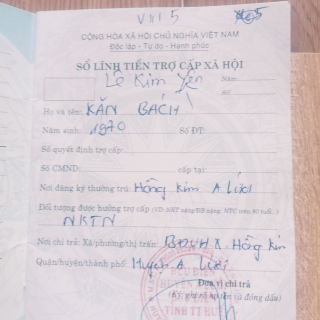 VIII 5
CỘNG HÒA XÃ HỘI CHỦ NGHĨA VIỆT NAM
Độc lập - Tự do - Hạnh phúc
SỔ LĨNH TIỀN TRỢ CẤP XÃ HỘI
Lê Kim Yến
Năm:
Số:
Họ và tên: KĂN BÁCH
Năm sinh: 1970 Số ĐT:
Số quyết định trợ cấp:
Số CMND: cấp tại:
Nơi đăng ký thường trú: Hồng Kim A Lưới
Đối tượng được hưởng trợ cấp (VD: NKT nặng/ĐB nặng, NTC trên 80 tuổi..)
NKTN
Nơi chi trả: Xã/phường/thị trấn: BĐVHX - Hồng Kim
Quận/huyện/thành phố: Huyện A Lưới
Đơn vị chi trả
(Ký, ghi rõ họ tên và đóng dấu)
BƯU ĐIỆN
HUYỆN
TỈNH TT HUẾ